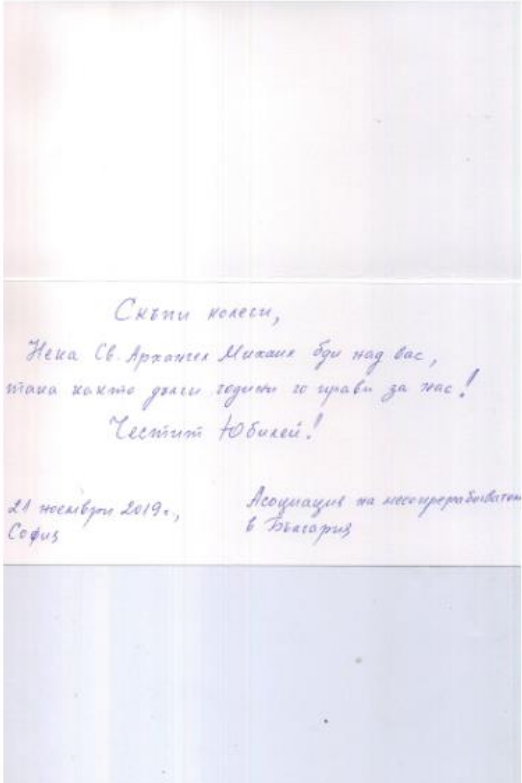 Скъпи колеги,
Нека Св. Архангел Михаил бди над вас,
така както дълги години го прави за нас!
Честит Юбилей!
21 ноември 2019г.,
София
Асоциация на месопреработватели
в България